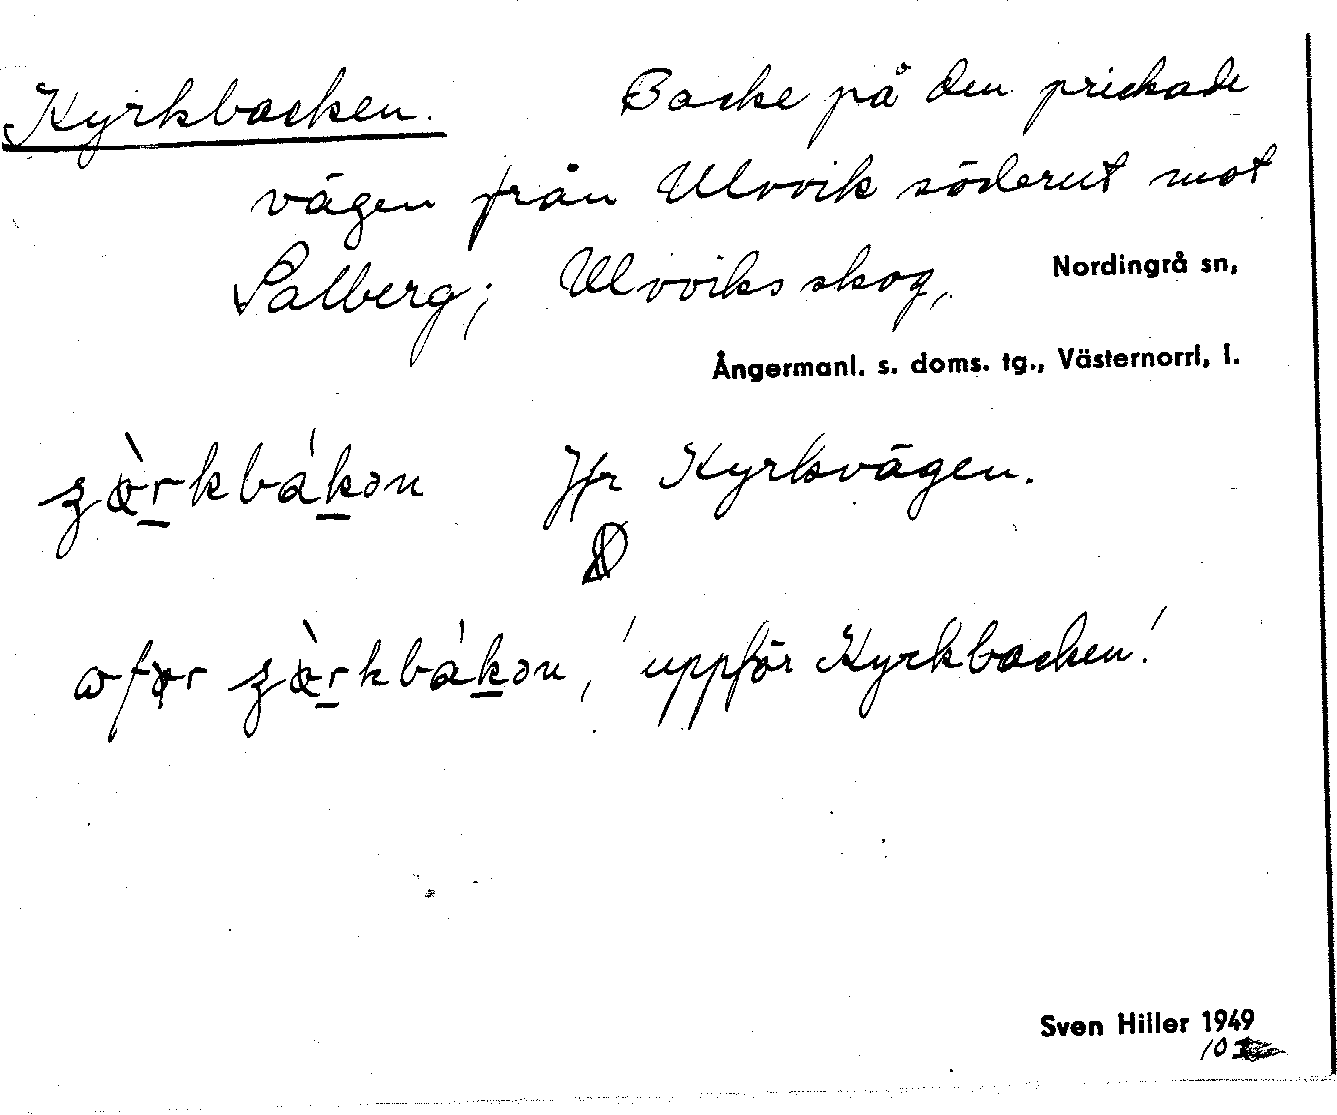 Kyrkbacken. Backe på den prickade
vägen från Ulvvik söderut mot
Salberg; Ulvviks skog, Nordingrå sn,
Ångermanl. s. doms. tg., Västernorrl. l.
Jfr Kyrkvägen.
'uppför Kyrkbacken'
Sven Hiller 1949
10